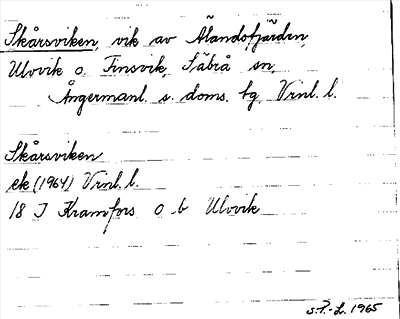 Skårsviken, vik av Ålandsfjärden,
Ulvvik o. Finsvik, Säbrå sn,
Ångermanl. s. doms. tg, Vrnl. l.
Skårsviken
ek (1964) Vrnl. l.
18 I Kramfors o b Ulvvik
S.P.-L. 1965